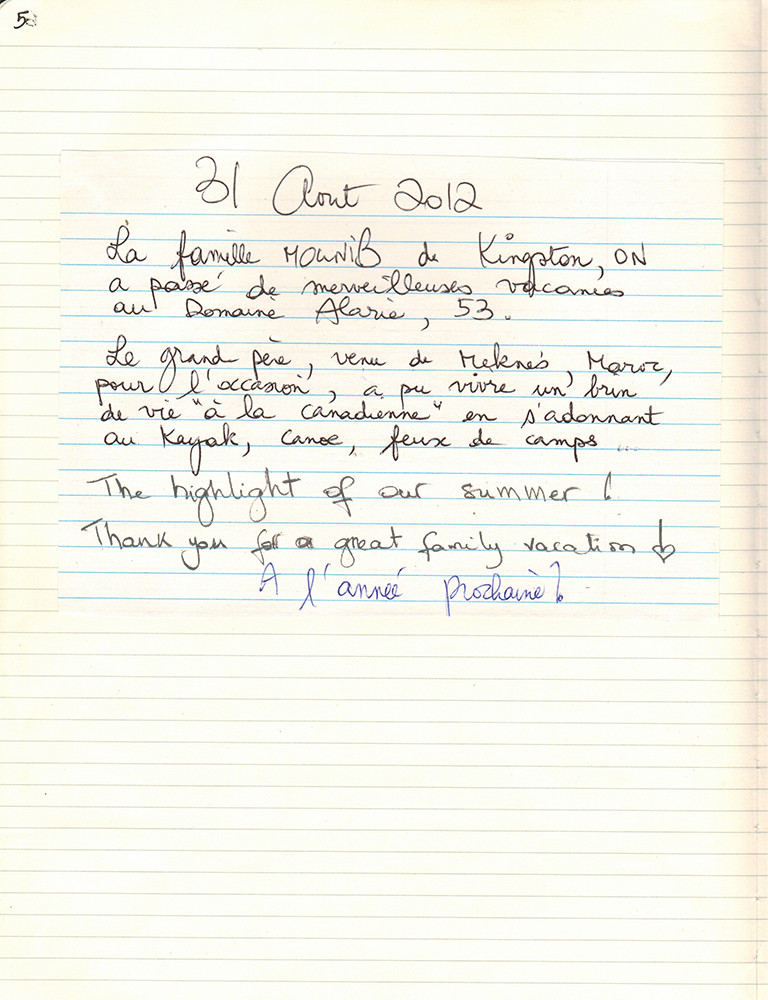 31 Aout 2012
La famille MOUNiB de Kingston, ON
a passé de merveilleuses vacances
au Domaine Alarie, 53.
Le grand père, venu de Meknès, Maroc,
pour l'occasion, a pu vivre un brin
de vie "à la canadienne" en s'adonnant
au Kayak, canoe, feux de camps ...
The highlight of our summer !
Thank you for a great family vacation !
A l'année prochaine !